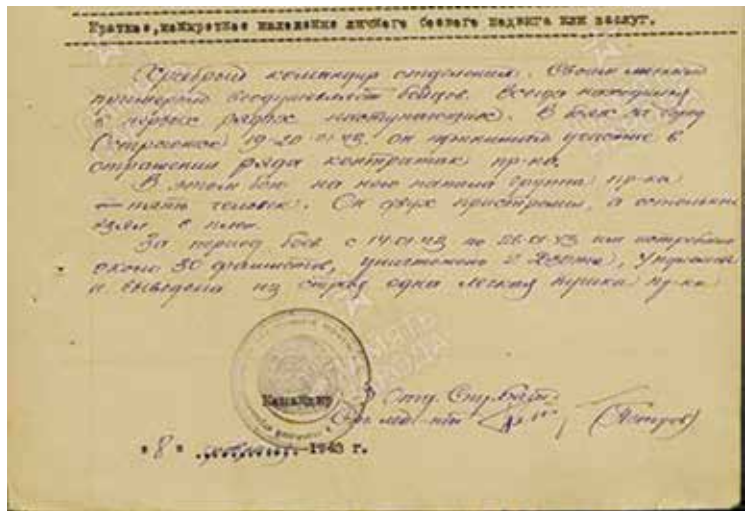 Краткое, конкретное изложение личного боевого подвига или заслуг.
Храбрый командир отделения. Своим личным
примером воодушевляет бойцов. Всегда находится
в первых рядах наступающих. В боях за город
Острогожск 19-20.01.43 он принимает участие в
отражении ряда контратак пр-ка.
В этом бою на него напала группа пр-ка
— пять человек. Он двух пристрелил, а остальных
взял в плен.
За период боев с 14.01.43 по 26.01.43 им истреблено
около 30 фашистов, уничтожено 2 ДЗОТа,
и выведена из строя одна легкая пушка пр-ка
Командир 3 Отд.
"8" 1943 г.